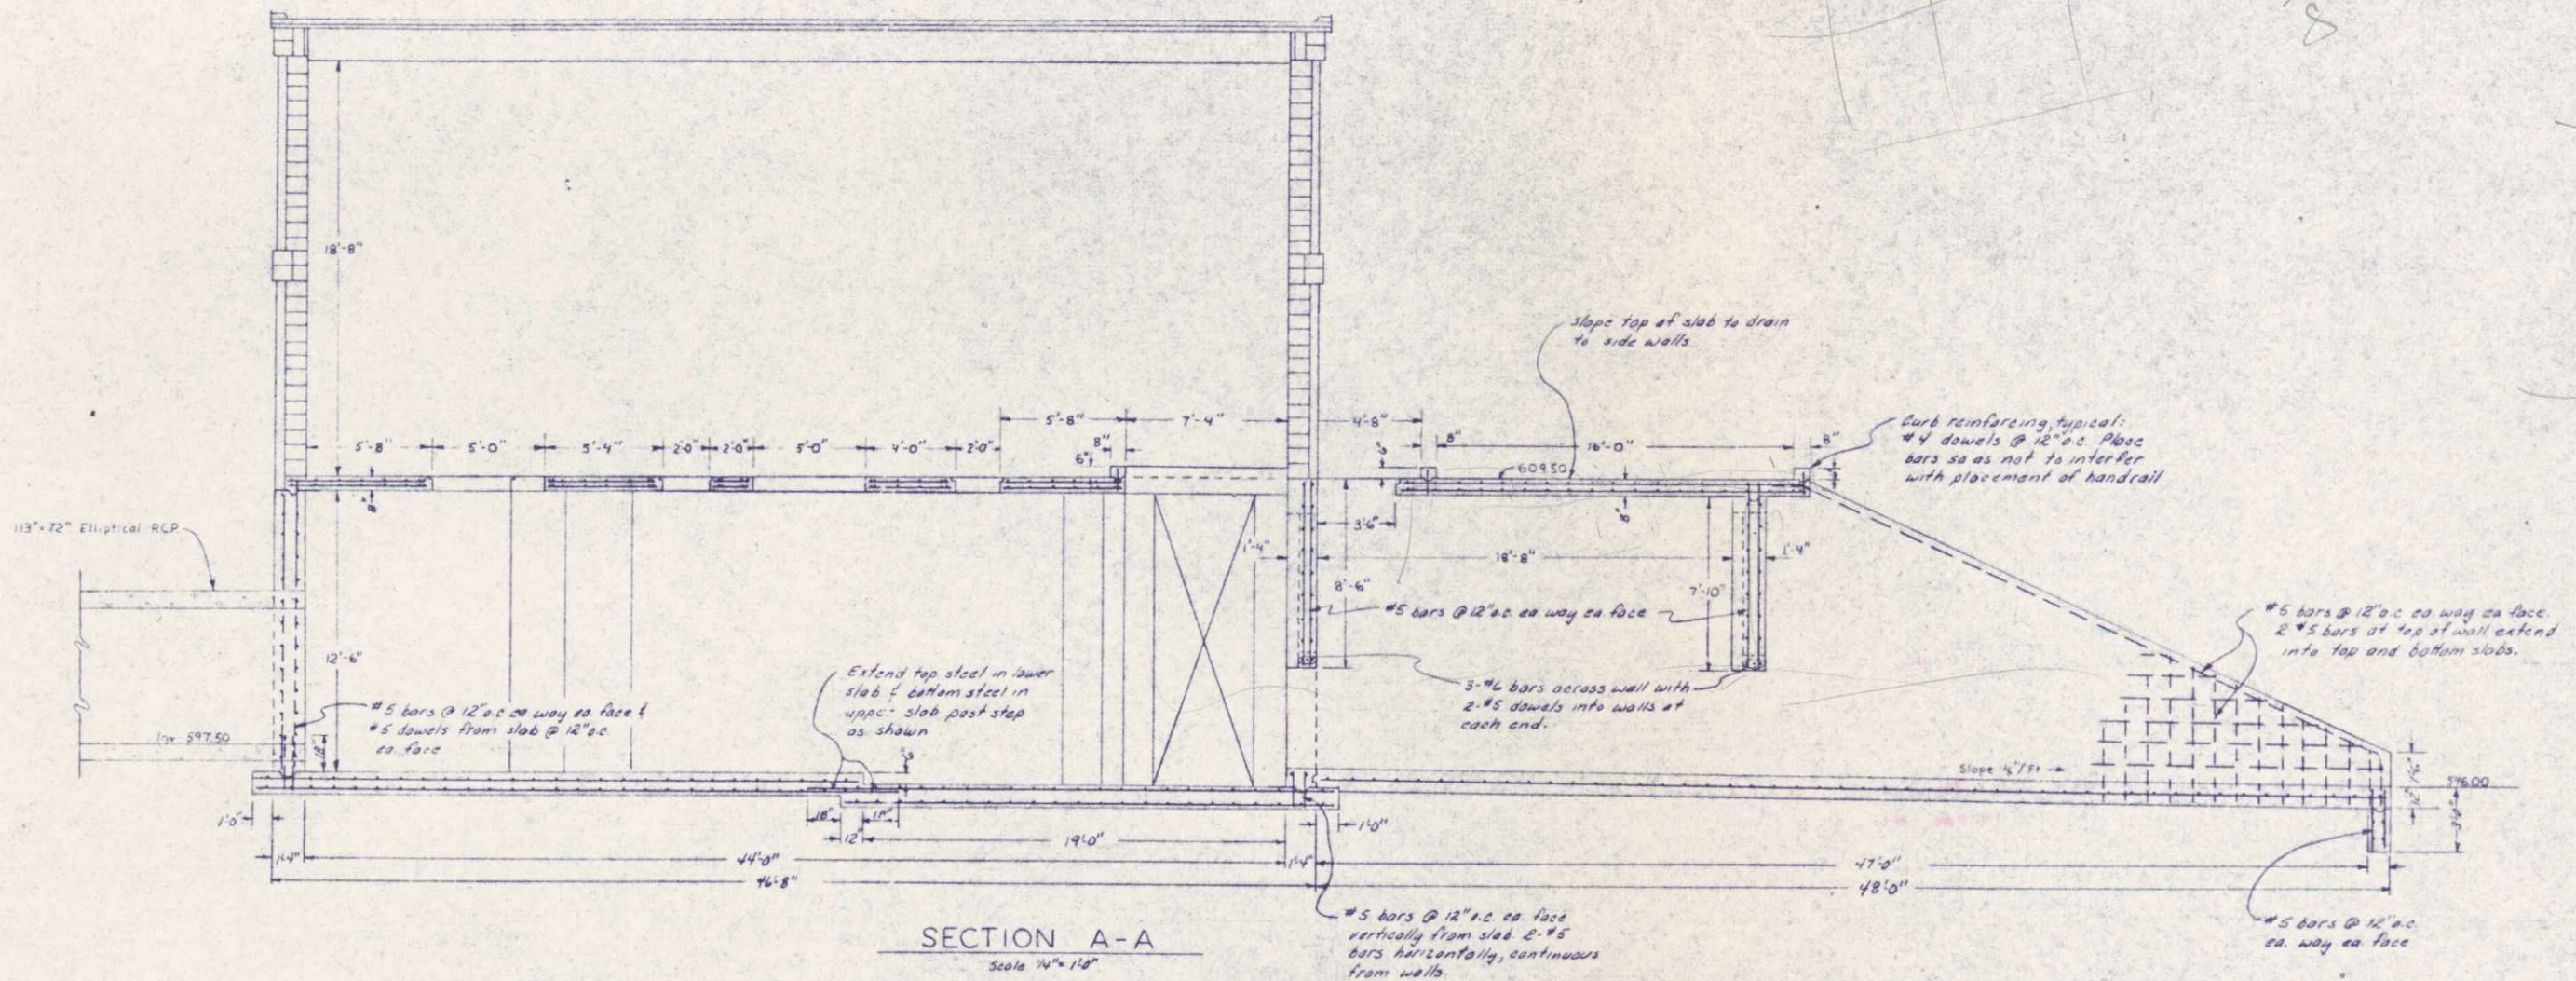 8
18'-8"
Slope top of slab to drain
to side walls
5'-8"
7'-4"
4'-8"
5'-8"
5'-0"
5'-4"
2'-0"
2'-0"
5'-0"
4'-0"
2'-0"
8"
6"
8"
16'-0"
8"
609.50
Curb reinforcing, typical:
#4 dowels @ 12" o.c. Place
bars so as not to interfer
with placement of handrail
8"
3'-6"
8"
113" x 72" Elliptical RCP
1'-4"
18'-8"
1'-4"
8'-6"
7'-10"
#5 bars @ 12" o.c. ea way ea. face
#5 bars @ 12" o.c ea way ea face.
2 #5 bars at top of wall extend
into top and bottom slabs.
12'-6"
Extend top steel in lower
slab & bottom steel in
upper slab past step
as shown
3-#6 bars across wall with
2-#5 dowels into walls at
each end.
#5 bars @ 12" o.c ea way ea. face &
#5 dowels from slab @ 12" o.c.
ea. face
Inv 597.50
18"
Slope 1/8"/Ft
596.00
1'-0"
18"
12"
18"
19'-0"
1'-0"
1'-4"
44'-0"
1'-4"
47'-0"
46'-8"
48'-0"
#5 bars @ 12" o.c. ea. face
vertically from slab. 2-#5
bars horizontally, continuous
from walls.
#5 bars @ 12" o.c.
ea. way ea. face
SECTION A-A
Scale 1/4" = 1'-0"